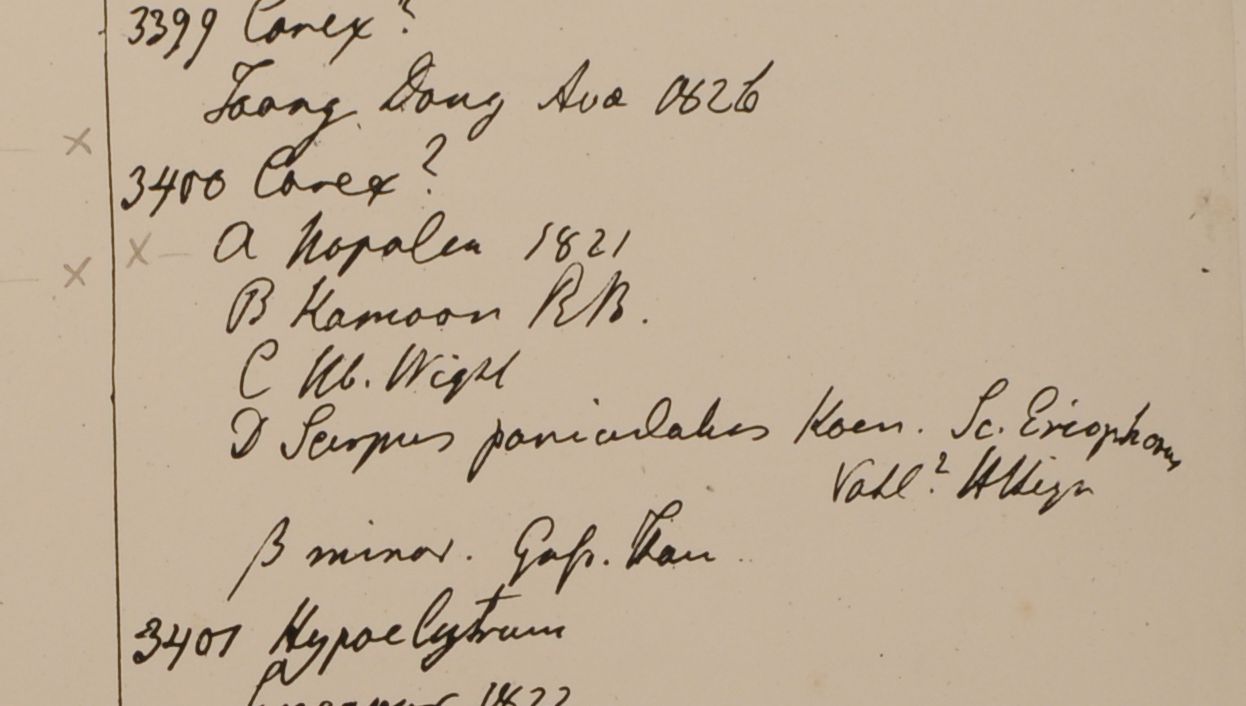 3399 Carex?
Taong Dong Ava 1826
3400 Carex?
A Napalea 1821
B Kamaon RB.
C Hb. Wight
D Scirpus paniculatus Koen. Sc. Eriophorus
Vahl? HHeyn
β minor. Goss. Than
3401 Hypaelytrum
1822